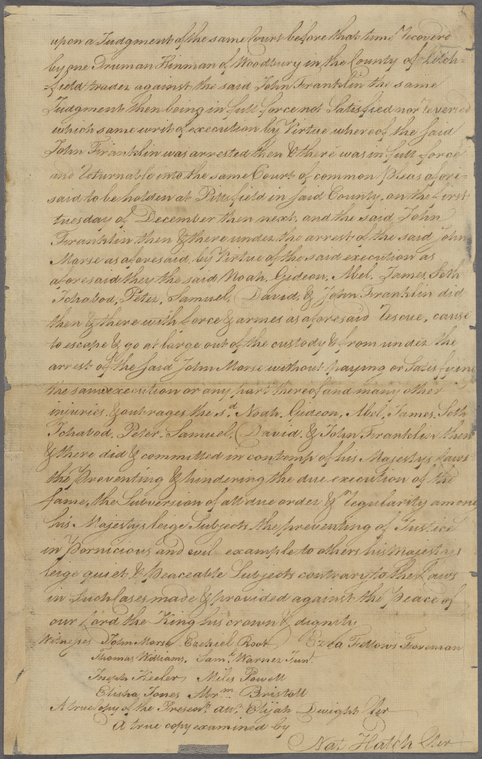 upon a Judgment of the same Court before that time recovered
by one Truman Hinman of Woodbury in the County of Litch-
field trader against the said John Franklin the same
Judgment then being in full force not Satisfied nor revers'd
which same writ of execution by Virtue whereof the said
John Franklin was arrested then & there was in full force
and returnable into the same Court of common Pleas afore-
said to be holden at Pittsfield in said County, on the first
tuesday of December then next, and the said John
Franklin then & there under the arrest of the said John
Morse as aforesaid by Virtue of the said execution as
aforesaid they the said Noah, Gideon, Abel, James, Seth
Ichabod, Peter, Samuel, David, & John Franklin did
then & there with force & armes as aforesaid rescue, cause
to escape & go at large out of the custody & from under the
arrest of the said John Morse without paying or Satisfying
the same execution or any part thereof and many other
injuries & outrages the sd. Noah, Gideon, Abel, James, Seth
Ichabod, Peter, Samuel, David & John Franklin then
& there did & committed in contempt of his Majestys laws
the Preventing & hendering the due execution of the
same, the Subversion of all due order & regularity among
his Majestys leige Subjects the preventing of Justice
in Pornicious and evil example to others his majestys
leige quiet & Peaceable Subjects contrary to the Laws
in such cases made & provided against the peace of
our Lord the King his crown & dignity
Witneses John Morse Ezekiel Root Ezra Fellows Foreman
Thomas William, Saml. Warner Junr
Joseph Keeler Miles Powell
Elisha Jones Abrm Bristoll
A true copy of the Presentt. attr. Elijah Dwight Cler
A true copy examined by
Nat. Hatch Cler